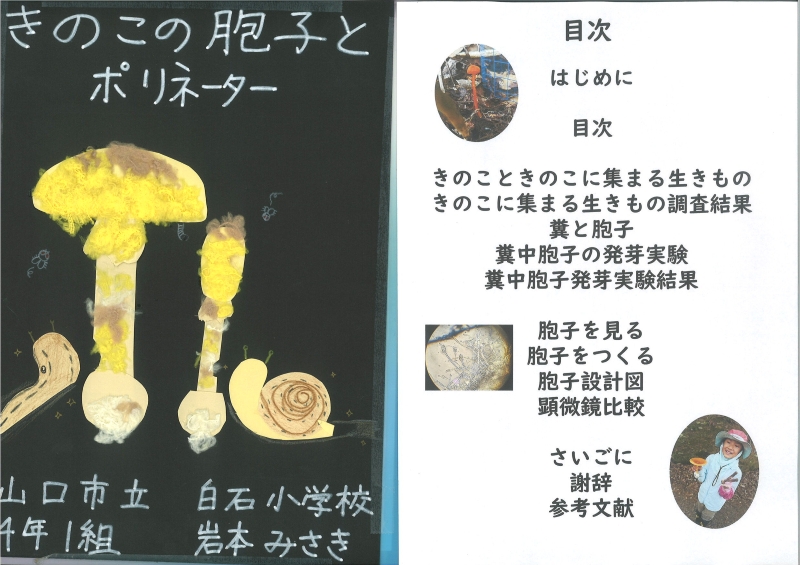 きのこの胞子と
ポリネーター
山口市立 白石小学校
4年1組 岩本みさき
目次
はじめに
目次
きのこときのこに集まる生きもの
きのこに集まる生きもの調査結果
糞と胞子
糞中胞子の発芽実験
糞中胞子発芽実験結果
胞子を見る
胞子をつくる
胞子設計図
顕微鏡比較
さいごに
謝辞
参考文献